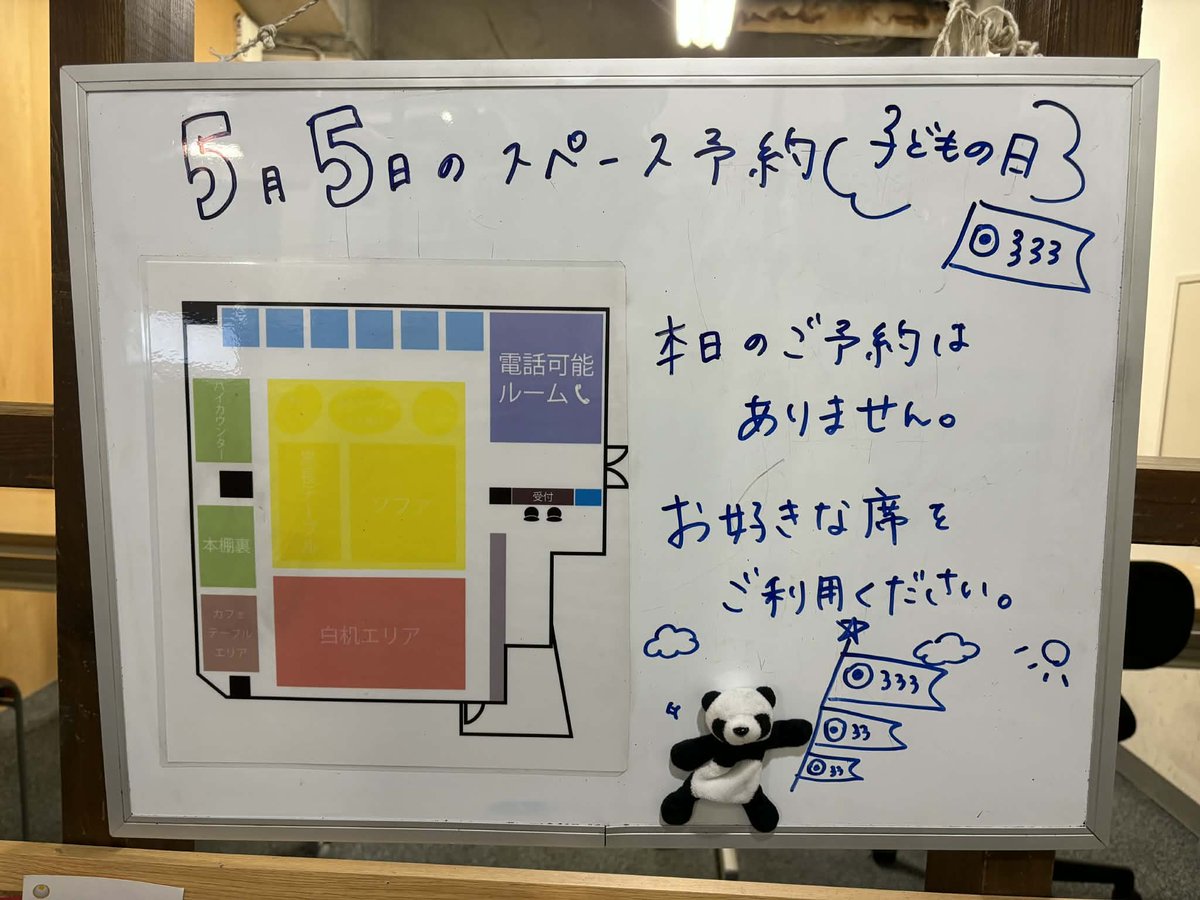 5月5日のスペース予約(子どもの日)
本日のご予約は
ありません。
お好きな席を
ご利用ください。
電話可能
ルーム
ハイカウンター
ソファ
受付
本棚裏
カフェ
テーブル
エリア
白机エリア